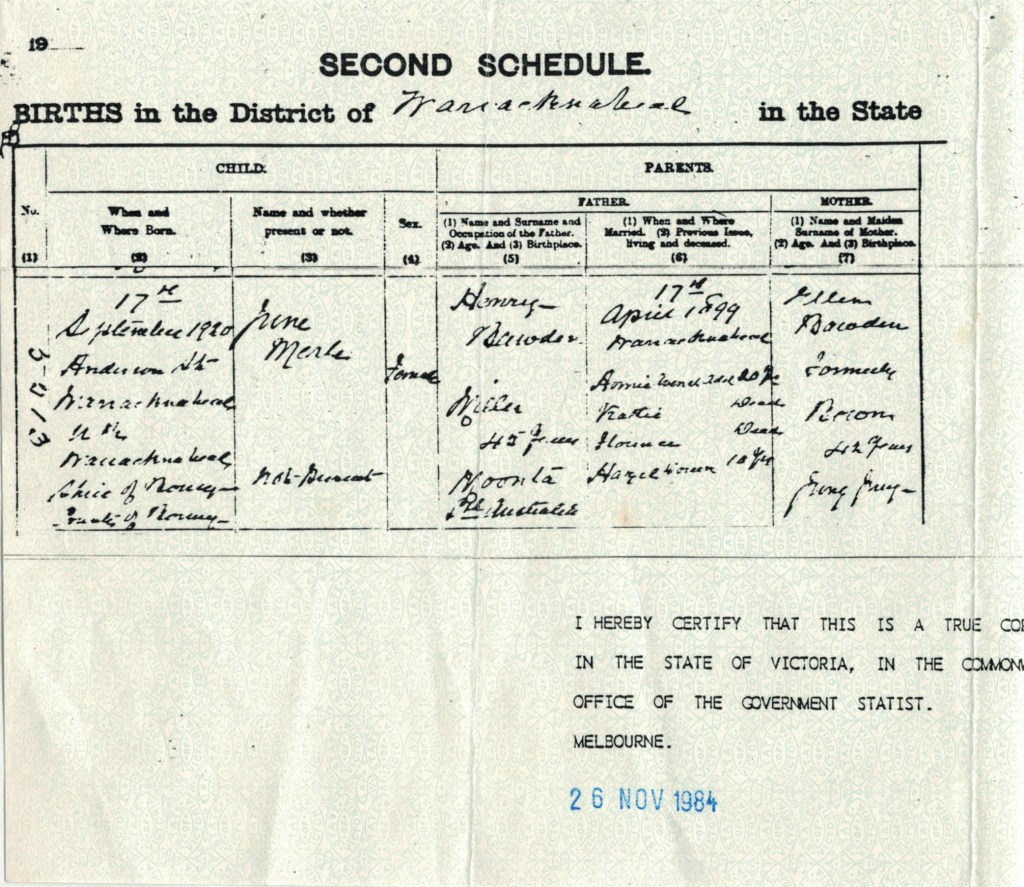 19
SECOND SCHEDULE.
BIRTHS in the District of Warracknabeal in the State
CHILD.
PARENTS.
FATHER.
MOTHER.
No.
When and
Where Born.
Name and whether
present or not.
Sex.
(1) Name and Surname and
Occupation of the Father.
(2) Age. And (3) Birthplace.
(1) When and Where
Married. (2) Previous Issue,
living and deceased.
(1) Name and Maiden
Surname of Mother.
(2) Age. And (3) Birthplace.
(1)
(2)
(3)
(4)
(5)
(6)
(7)
17th
September 1920
Anderson St
Warracknabeal
Warracknabeal
Shire of
of
June
Merle
Not Present
Female
Henry
Bowden
Miller
45 Years
Moonta
Sth Australia
17th
April 1899
Warracknabeal
Dead
Dead
Florence
Hazel
10 Yrs
Ellen
Bowden
Formerly
42 Years
I HEREBY CERTIFY THAT THIS IS A TRUE
IN THE STATE OF VICTORIA, IN THE
OFFICE OF THE GOVERNMENT STATIST.
MELBOURNE.
26 NOV 1984